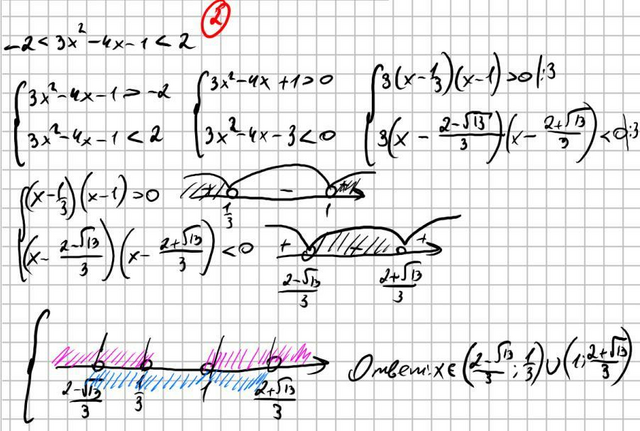 2
-2 < 3x² - 4x - 1 < 2
{ 3x² - 4x - 1 > -2
{ 3x² - 4x - 1 < 2
{ 3x² - 4x + 1 > 0
{ 3x² - 4x - 3 < 0
{ 3(x - 1/3)(x - 1) > 0 |:3
{ 3(x - (2-√13)/3)(x - (2+√13)/3) < 0 |:3
{ (x - 1/3)(x - 1) > 0
{ (x - (2-√13)/3)(x - (2+√13)/3) < 0
+ - +
1/3 1
+ +
(2-√13)/3 (2+√13)/3
{
(2-√13)/3 1/3 1 (2+√13)/3
Ответ: x ∈ ((2-√13)/3; 1/3) ∪ (1; (2+√13)/3)